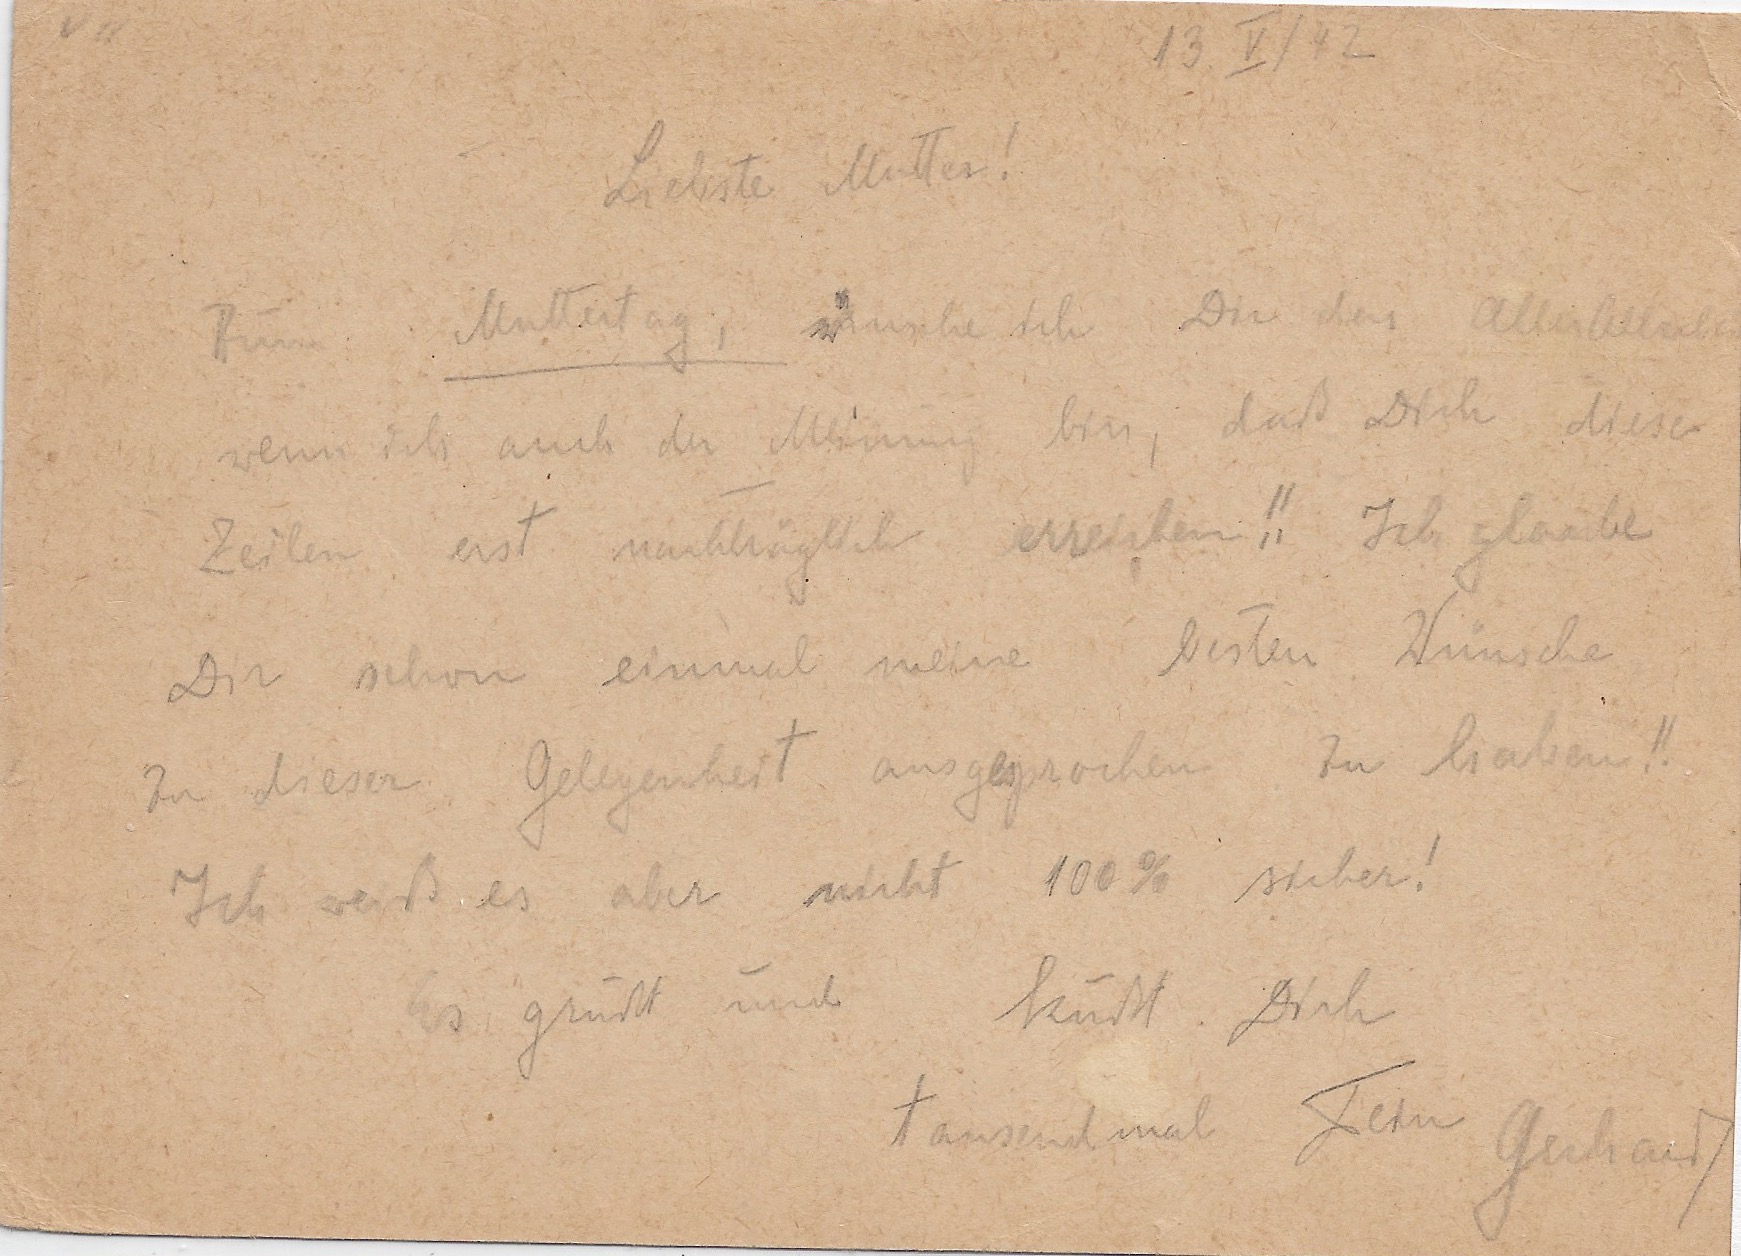 13. V/42
Liebste Mutter!
Zum Muttertag, wünsche ich Dir das
wenn ich auch der Meinung bin, daß Dich diese
Zeilen erst nachträglich erreichen!! Ich glaube
Dir schon einmal meine besten Wünsche
zu dieser Gelegenheit ausgesprochen zu haben!!
Ich weiß es aber nicht 100% sicher!
Es grüßt und küßt Dich
tausendmal Dein Gerhard